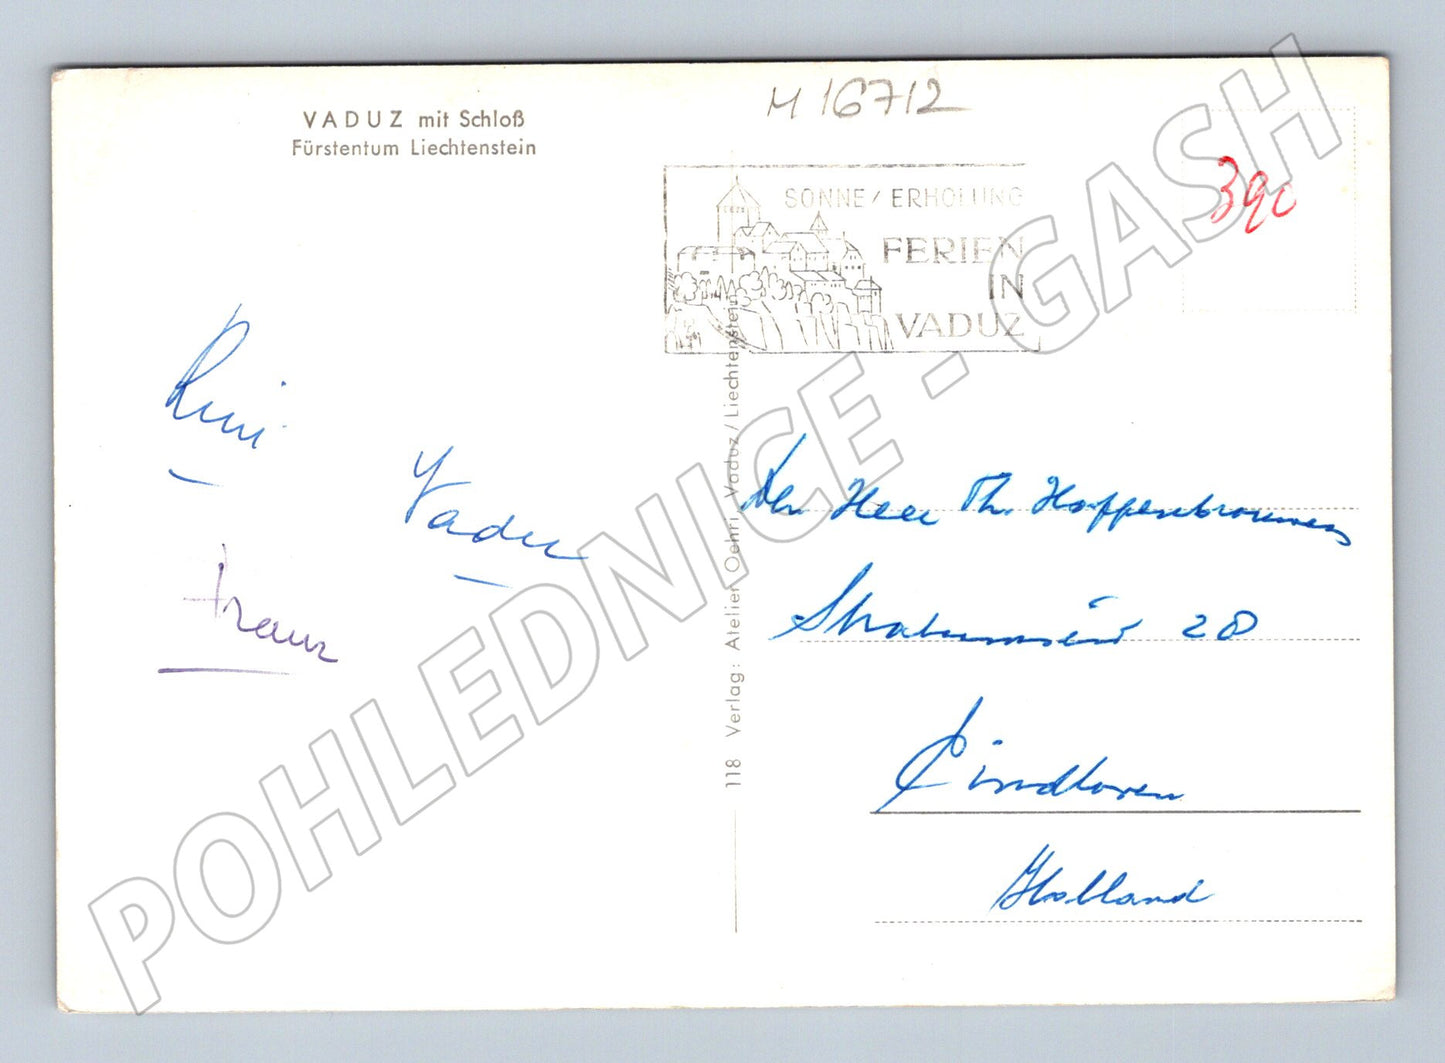 VADUZ mit Schloß
Fürstentum Liechtenstein
M 16712
SONNE / ERHOLUNG
FERIEN
IN
VADUZ
390
Rini
Vadu
Frans
118 Verlag: Atelier Oehri, Vaduz/Liechtenstein
Den Heer Th. Hoppenbrouwers
28
Eindhoven
Holland
POHLEDNICE - GASH